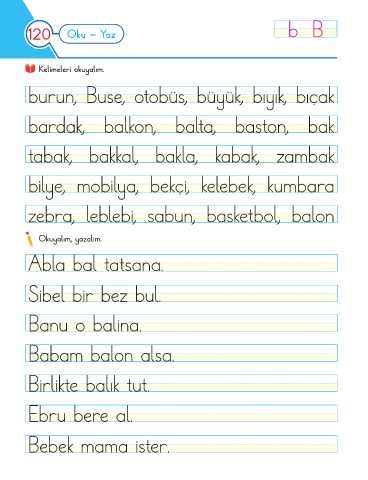 120 Oku – Yaz b B
Kelimeleri okuyalım.
burun, Buse, otobüs, büyük, bıyık, bıçak
bardak, balkon, balta, baston, bak
tabak, bakkal, bakla, kabak, zambak
bilye, mobilya, bekçi, kelebek, kumbara
zebra, leblebi, sabun, basketbol, balon
Okuyalım, yazalım.
Abla bal tatsana.
Sibel bir bez bul.
Banu o balina.
Babam balon alsa.
Birlikte balık tut.
Ebru bere al.
Bebek mama ister.